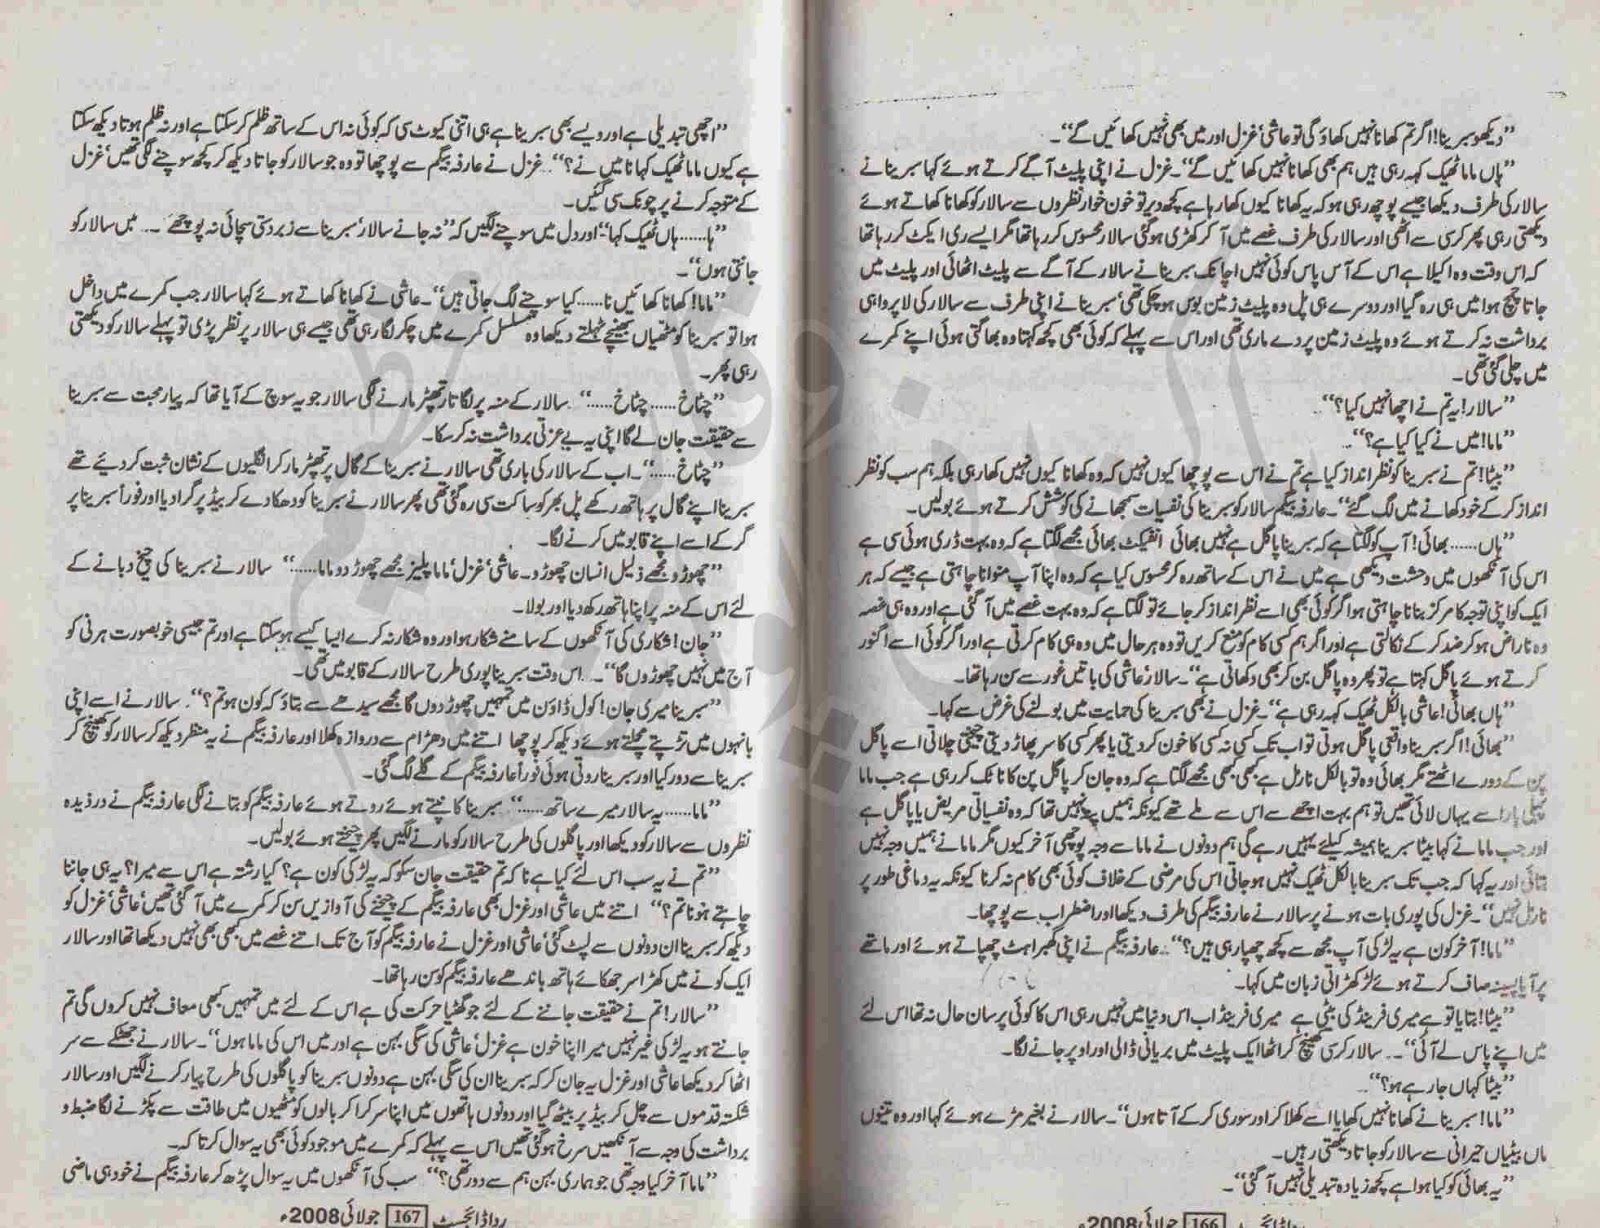 ”دیکھو سبرینا! اگر تم کھانا نہیں کھاؤ گی تو عاشی‘ غزل اور میں بھی نہیں کھائیں گے“۔
”ہاں ماما ٹھیک کہہ رہی ہیں ہم بھی کھانا نہیں کھائیں گے“۔ غزل نے اپنی پلیٹ آگے کرتے ہوئے کہا سبرینا نے
سالار کی طرف دیکھا جیسے پوچھ رہی ہو کہ یہ کھانا کیوں کھا رہا ہے کچھ دیر تو خون خوار نظروں سے سالار کو کھانا کھاتے ہوئے
دیکھتی رہی پھر کرسی سے اٹھی اور سالار کی طرف غصے میں آ کر کھڑی ہو گئی سالار محسوس کر رہا تھا مگر ایسے ری ایکٹ کر رہا تھا
کہ اس وقت وہ اکیلا ہے اس کے آس پاس کوئی نہیں اچانک سبرینا نے سالار کے آگے سے پلیٹ اٹھائی اور پلیٹ میں
جاتا چمچ ہوا میں ہی رہ گیا اور دوسرے ہی پل وہ پلیٹ زمین بوس ہو چکی تھی‘ سبرینا نے اپنی طرف سے سالار کی لاپرواہی
برداشت نہ کرتے ہوئے وہ پلیٹ زمین پر دے ماری تھی اور اس سے پہلے کہ کوئی بھی کچھ کہتا وہ بھاگتی ہوئی اپنے کمرے
میں چلی گئی تھی۔
”سالار! یہ تم نے اچھا نہیں کیا؟“۔
”ماما! میں نے کیا کیا ہے؟“۔
”بیٹا! تم نے سبرینا کو نظر انداز کیا ہے تم نے اس سے پوچھا کیوں نہیں کہ وہ کھانا کیوں نہیں کھا رہی بلکہ ہم سب کو نظر
انداز کر کے خود کھانے میں لگ گئے“۔ عارفہ بیگم سالار کو سبرینا کی نفسیات سمجھانے کی کوشش کرتے ہوئے بولیں۔
”ہاں...... بھائی! آپ کو لگتا ہے کہ سبرینا پاگل ہے نہیں بھائی انفیکٹ بھائی مجھے لگتا ہے کہ وہ بہت ڈری ہوئی سی ہے
اس کی آنکھوں میں وحشت دیکھی ہے میں نے اس کے ساتھ رہ کر محسوس کیا ہے کہ وہ اپنا آپ منوانا چاہتی ہے جیسے کہ ہر
ایک کو اپنی توجہ کا مرکز بنانا چاہتی ہو اگر کوئی بھی اسے نظر انداز کر جائے تو لگتا ہے کہ وہ بہت غصے میں آ گئی ہے اور وہ ہی غصہ
وہ ناراض ہو کر ضد کر کے نکالتی ہے اور اگر ہم کسی کام کو منع کریں تو وہ ہر حال میں وہ ہی کام کرتی ہے اور اگر کوئی اسے اگنور
کرتے ہوئے پاگل کہتا ہے تو پھر وہ پاگل بن کر بھی دکھاتی ہے“۔ سالار‘ عاشی کی باتیں غور سے سن رہا تھا۔
”ہاں بھائی! عاشی بالکل ٹھیک کہہ رہی ہے“۔ غزل نے بھی سبرینا کی حمایت میں بولنے کی غرض سے کہا۔
”بھائی! اگر سبرینا واقعی پاگل ہوتی تو اب تک کسی نہ کسی کا خون کر دیتی یا پھر کسی کا سر پھاڑ دیتی چیختی چلاتی اسے پاگل
پن کے دورے اٹھتے مگر بھائی وہ تو بالکل نارمل ہے کبھی کبھی مجھے لگتا ہے کہ وہ جان کر پاگل پن کا ناٹک کر رہی ہے جب ماما
پہلی بار اسے یہاں لائی تھیں تو ہم بہت اچھے سے اس سے ملے تھے کیونکہ ہمیں پتہ نہیں تھا کہ وہ نفسیاتی مریض یا پاگل ہے
اور جب ماما نے کہا بیٹا سبرینا ہمیشہ کیلئے یہیں رہے گی ہم دونوں نے ماما سے وجہ پوچھی آخر کیوں مگر ماما نے ہمیں وجہ نہیں
بتائی اور یہ کہا کہ جب تک سبرینا بالکل ٹھیک نہیں ہو جاتی اس کی مرضی کے خلاف کوئی بھی کام نہ کرنا کیونکہ یہ دماغی طور پر
نارمل نہیں“۔ غزل کی پوری بات ہونے پر سالار نے عارفہ بیگم کی طرف دیکھا اور اضطراب سے پوچھا۔
”ماما! آخر کون ہے یہ لڑکی آپ مجھ سے کچھ چھپا رہی ہیں؟“۔ عارفہ بیگم نے اپنی گھبراہٹ چھپاتے ہوئے اور ماتھے
پر آیا پسینہ صاف کرتے ہوئے لڑکھڑاتی زبان میں کہا۔
”بیٹا! بتایا تو ہے میری فرینڈ کی بیٹی ہے میری فرینڈ اب اس دنیا میں نہیں رہی اس کا کوئی پرسان حال نہ تھا اس لئے
میں اپنے پاس لے آئی“۔ سالار کرسی کھینچ کر اٹھا ایک پلیٹ میں بریانی ڈالی اور اوپر جانے لگا۔
”بیٹا کہاں جا رہے ہو؟“۔
”ماما! سبرینا نے کھانا نہیں کھایا اسے کھلا کر اور سوری کر کے آتا ہوں“۔ سالار نے بغیر مڑے ہوئے کہا اور وہ تینوں
ماں بیٹیاں حیرانی سے سالار کو جاتا دیکھتی رہیں۔
”یہ بھائی کو کیا ہوا ہے کچھ زیادہ تبدیلی نہیں آ گئی“۔
رداڈائجسٹ 166 جولائی 2008ء
”اچھی تبدیلی ہے اور ویسے بھی سبرینا ہے ہی اتنی کیوٹ سی کہ کوئی نہ اس کے ساتھ ظلم کر سکتا ہے اور نہ ظلم ہوتا دیکھ سکتا
ہے کیوں ماما ٹھیک کہا نا میں نے؟“۔ غزل نے عارفہ بیگم سے پوچھا تو وہ جو سالار کو جاتا دیکھ کر کچھ سوچنے لگی تھیں‘ غزل
کے متوجہ کرنے پر چونک سی گئیں۔
”ہا...... ہاں ٹھیک کہا“ اور دل میں سوچنے لگیں کہ ”نہ جانے سالار‘ سبرینا سے زبردستی سچائی نہ پوچھے... میں سالار کو
جانتی ہوں“۔
”ماما! کھانا کھائیں نا...... کیا سوچنے لگ جاتی ہیں“۔ عاشی نے کھانا کھاتے ہوئے کہا سالار جب کمرے میں داخل
ہوا تو سبرینا کو مٹھیاں بھینچے ٹہلتے دیکھا وہ مسلسل کمرے میں چکر لگا رہی تھی جیسے ہی سالار پر نظر پڑی تو پہلے سالار کو دیکھتی
رہی پھر۔
”چٹاخ...... چٹاخ......“ سالار کے منہ پر لگاتار تھپڑ مارنے لگی سالار جو یہ سوچ کے آیا تھا کہ پیار محبت سے سبرینا
سے حقیقت جان لے گا اپنی یہ بے عزتی برداشت نہ کر سکا۔
”چٹاخ......“۔ اب کے سالار کی باری تھی سالار نے سبرینا کے گال پر تھپڑ مار کر انگلیوں کے نشان ثبت کر دیئے تھے
سبرینا اپنے گال پر ہاتھ رکھے پل بھر کو ساکت سی رہ گئی تھی پھر سالار نے سبرینا کو دھکا دے کر بیڈ پر گرا دیا اور فوراً سبرینا پر
گر کے اسے اپنے قابو میں کرنے لگا۔
”چھوڑو مجھے ذلیل انسان چھوڑو۔ عاشی‘ غزل‘ ماما پلیز مجھے چھوڑ دو ماما......“ سالار نے سبرینا کی چیخ دبانے کے
لئے اس کے منہ پر اپنا ہاتھ رکھ دیا اور بولا۔
”جان! شکاری کی آنکھوں کے سامنے شکار ہو اور وہ شکار نہ کرے ایسا کیسے ہو سکتا ہے اور تم جیسی خوبصورت ہرنی کو
آج میں نہیں چھوڑوں گا“۔ اس وقت سبرینا پوری طرح سالار کے قابو میں تھی۔
”سبرینا میری جان! کول ڈاؤن میں تمہیں چھوڑ دوں گا مجھے سیدھے سے بتاؤ کہ کون ہو تم؟“۔ سالار نے اسے اپنی
بانہوں میں تڑپتے مچلتے ہوئے دیکھ کر پوچھا اتنے میں دھڑام سے دروازہ کھلا اور عارفہ بیگم نے یہ منظر دیکھ کر سالار کو کھینچ کر
سبرینا سے دور کیا اور سبرینا روتی ہوئی فوراً عارفہ بیگم کے گلے لگ گئی۔
”ماما...... یہ سالار میرے ساتھ......“ سبرینا کانپتے ہوئے روتے ہوئے عارفہ بیگم کو بتانے لگی عارفہ بیگم نے دزدیدہ
نظروں سے سالار کو دیکھا اور پاگلوں کی طرح سالار کو مارنے لگیں پھر چیختے ہوئے بولیں۔
”تم نے یہ سب اس لئے کیا ہے نا کہ تم حقیقت جان سکو کہ یہ لڑکی کون ہے؟ کیا رشتہ ہے اس سے میرا؟ یہ ہی جاننا
چاہتے ہو نا تم؟“ اتنے میں عاشی اور غزل بھی عارفہ بیگم کے چیخنے کی آوازیں سن کر کمرے میں آ گئی تھیں‘ عاشی‘ غزل کو
دیکھ کر سبرینا ان دونوں سے لپٹ گئی‘ عاشی اور غزل نے عارفہ بیگم کو آج تک اتنے غصے میں کبھی بھی نہیں دیکھا تھا اور سالار
ایک کونے میں کھڑا سر جھکائے ہاتھ باندھے عارفہ بیگم کو سن رہا تھا۔
”سالار! تم نے حقیقت جاننے کے لئے جو گھٹیا حرکت کی ہے اس کے لئے میں تمہیں کبھی معاف نہیں کروں گی تم
جانتے ہو یہ لڑکی غیر نہیں میرا اپنا خون ہے غزل‘ عاشی کی سگی بہن ہے اور میں اس کی ماما ہوں“۔ سالار نے جھٹکے سے سر
اٹھا کر دیکھا عاشی اور غزل یہ جان کر کہ سبرینا ان کی سگی بہن ہے دونوں سبرینا کو پاگلوں کی طرح پیار کرنے لگیں اور سالار
شکستہ قدموں سے چل کر بیڈ پر بیٹھ گیا اور دونوں ہاتھوں میں اپنا سر گرا کر بالوں کو مٹھیوں میں طاقت سے پکڑنے لگا ضبط و
برداشت کی وجہ سے آنکھیں سرخ ہو گئی تھیں اس سے پہلے کہ کمرے میں موجود کوئی بھی یہ سوال کرتا کہ۔
”ماما آخر کیا وجہ تھی جو ہماری بہن ہم سے دور تھی؟“ سب کی آنکھوں میں یہ سوال پڑھ کر عارفہ بیگم نے خود ہی ماضی
رداڈائجسٹ 167 جولائی 2008ء